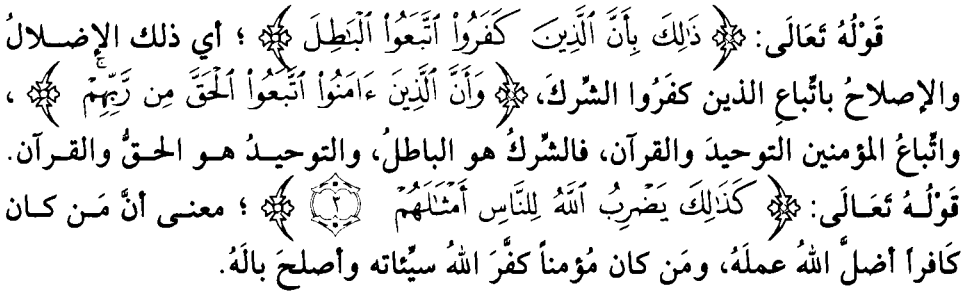 قَوْلُهُ تَعَالَى: ﴿ ذَٰلِكَ بِأَنَّ ٱلَّذِينَ كَفَرُوا۟ ٱتَّبَعُوا۟ ٱلْبَـٰطِلَ ﴾ ؛ أي ذلك الإضلالُ
والإصلاحُ باتِّباعِ الذين كفَرُوا الشِّركَ، ﴿ وَأَنَّ ٱلَّذِينَ ءَامَنُوا۟ ٱتَّبَعُوا۟ ٱلْحَقَّ مِن رَّبِّهِمْ ۚ ﴾ ،
واتِّباعُ المؤمنين التوحيدَ والقرآن، فالشِّركُ هو الباطلُ، والتوحيـدُ هـو الحـقُّ والقـرآن.
قَوْلُـهُ تَعَـالَى: ﴿ كَذَٰلِكَ يَضْرِبُ ٱللَّهُ لِلنَّاسِ أَمْثَـٰلَهُمْ ٣ ﴾ ؛ معنـى أنَّ مَـن كـان
كَافراً أضلَّ اللهُ عملَهُ، ومَن كان مُؤمناً كفَّرَ اللهُ سيِّئاته وأصلحَ بالَهُ.